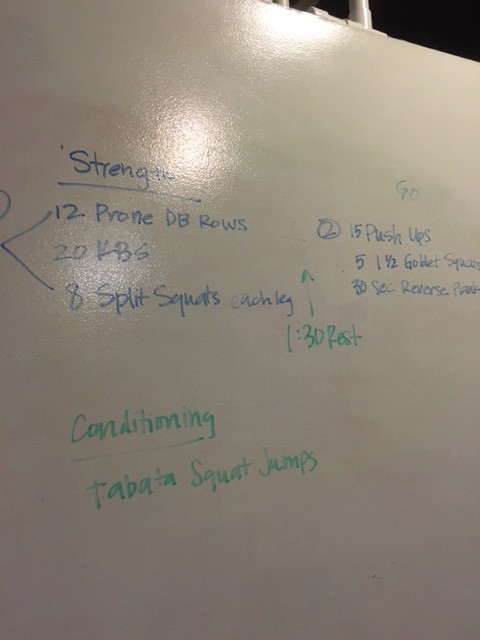 Strength
12 Prone DB Rows
20 KBS
8 Split Squats each leg
GO
② 15 Push Ups
5 1 1/2 Goblet Squats
30 Sec Reverse Plank
1:30 Rest
Conditioning
tabata Squat Jumps